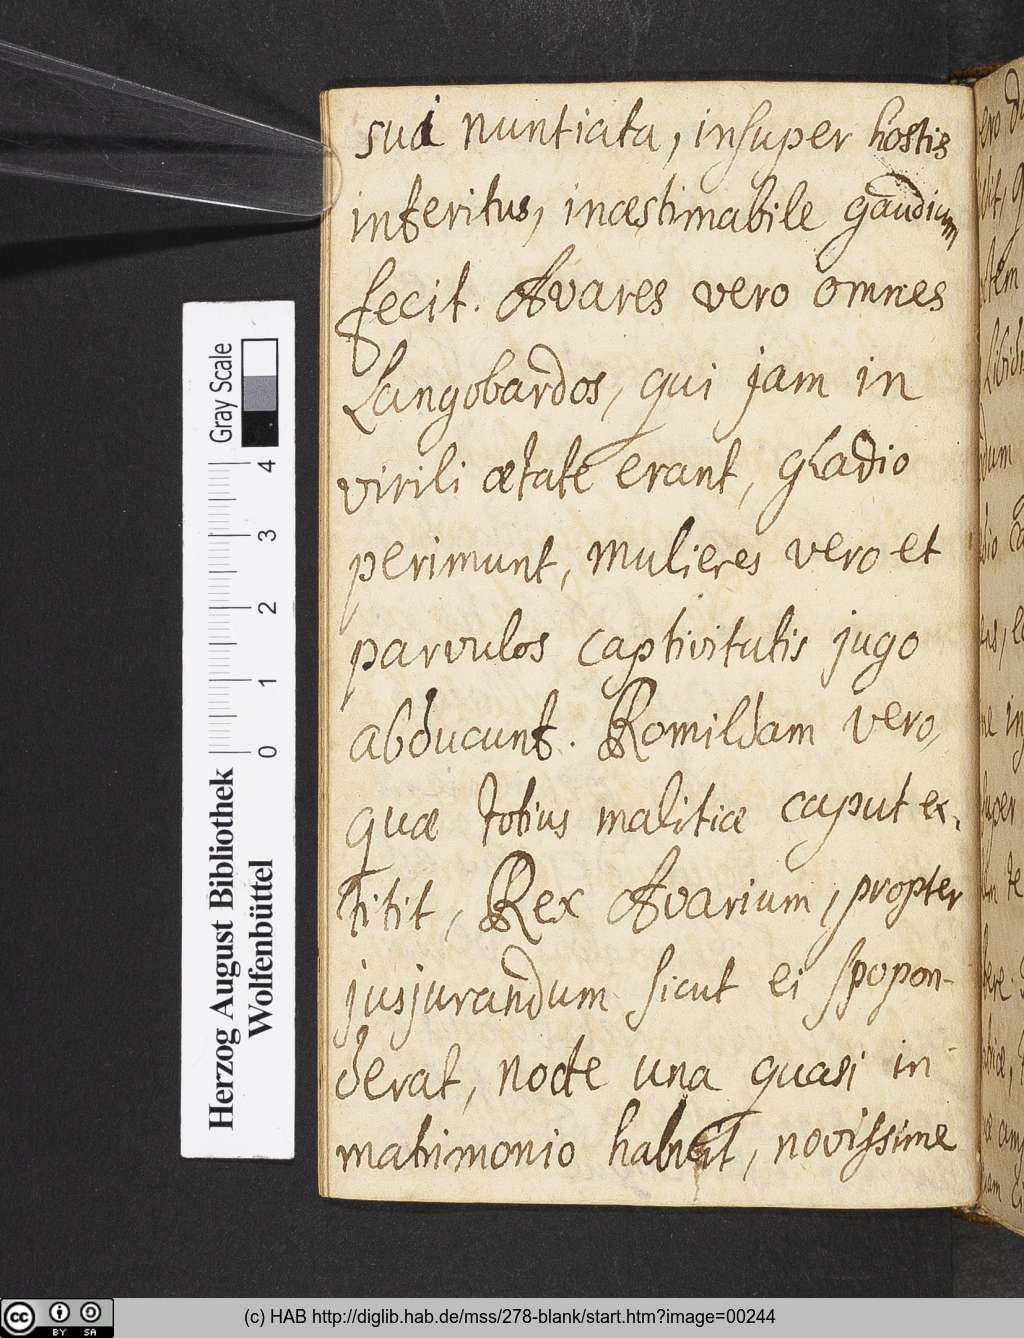 sui nuntiata, insuper hostis
interitus, inæstimabile gaudium
fecit. Avares vero omnes
Langobardos, qui jam in
virili ætate erant, gladio
perimunt, mulieres vero et
parvulos captivitatis jugo
abducunt. Romildam vero,
quæ totius malitiæ caput ex-
titit, Rex Avarium, propter
jusjurandum sicut ei spopon-
derat, nocte una quasi in
matrimonio habuit, novissime
Herzog August Bibliothek
Wolfenbüttel
0 1 2 3 4
Gray Scale
cc BY SA
(c) HAB http://diglib.hab.de/mss/278-blank/start.htm?image=00244